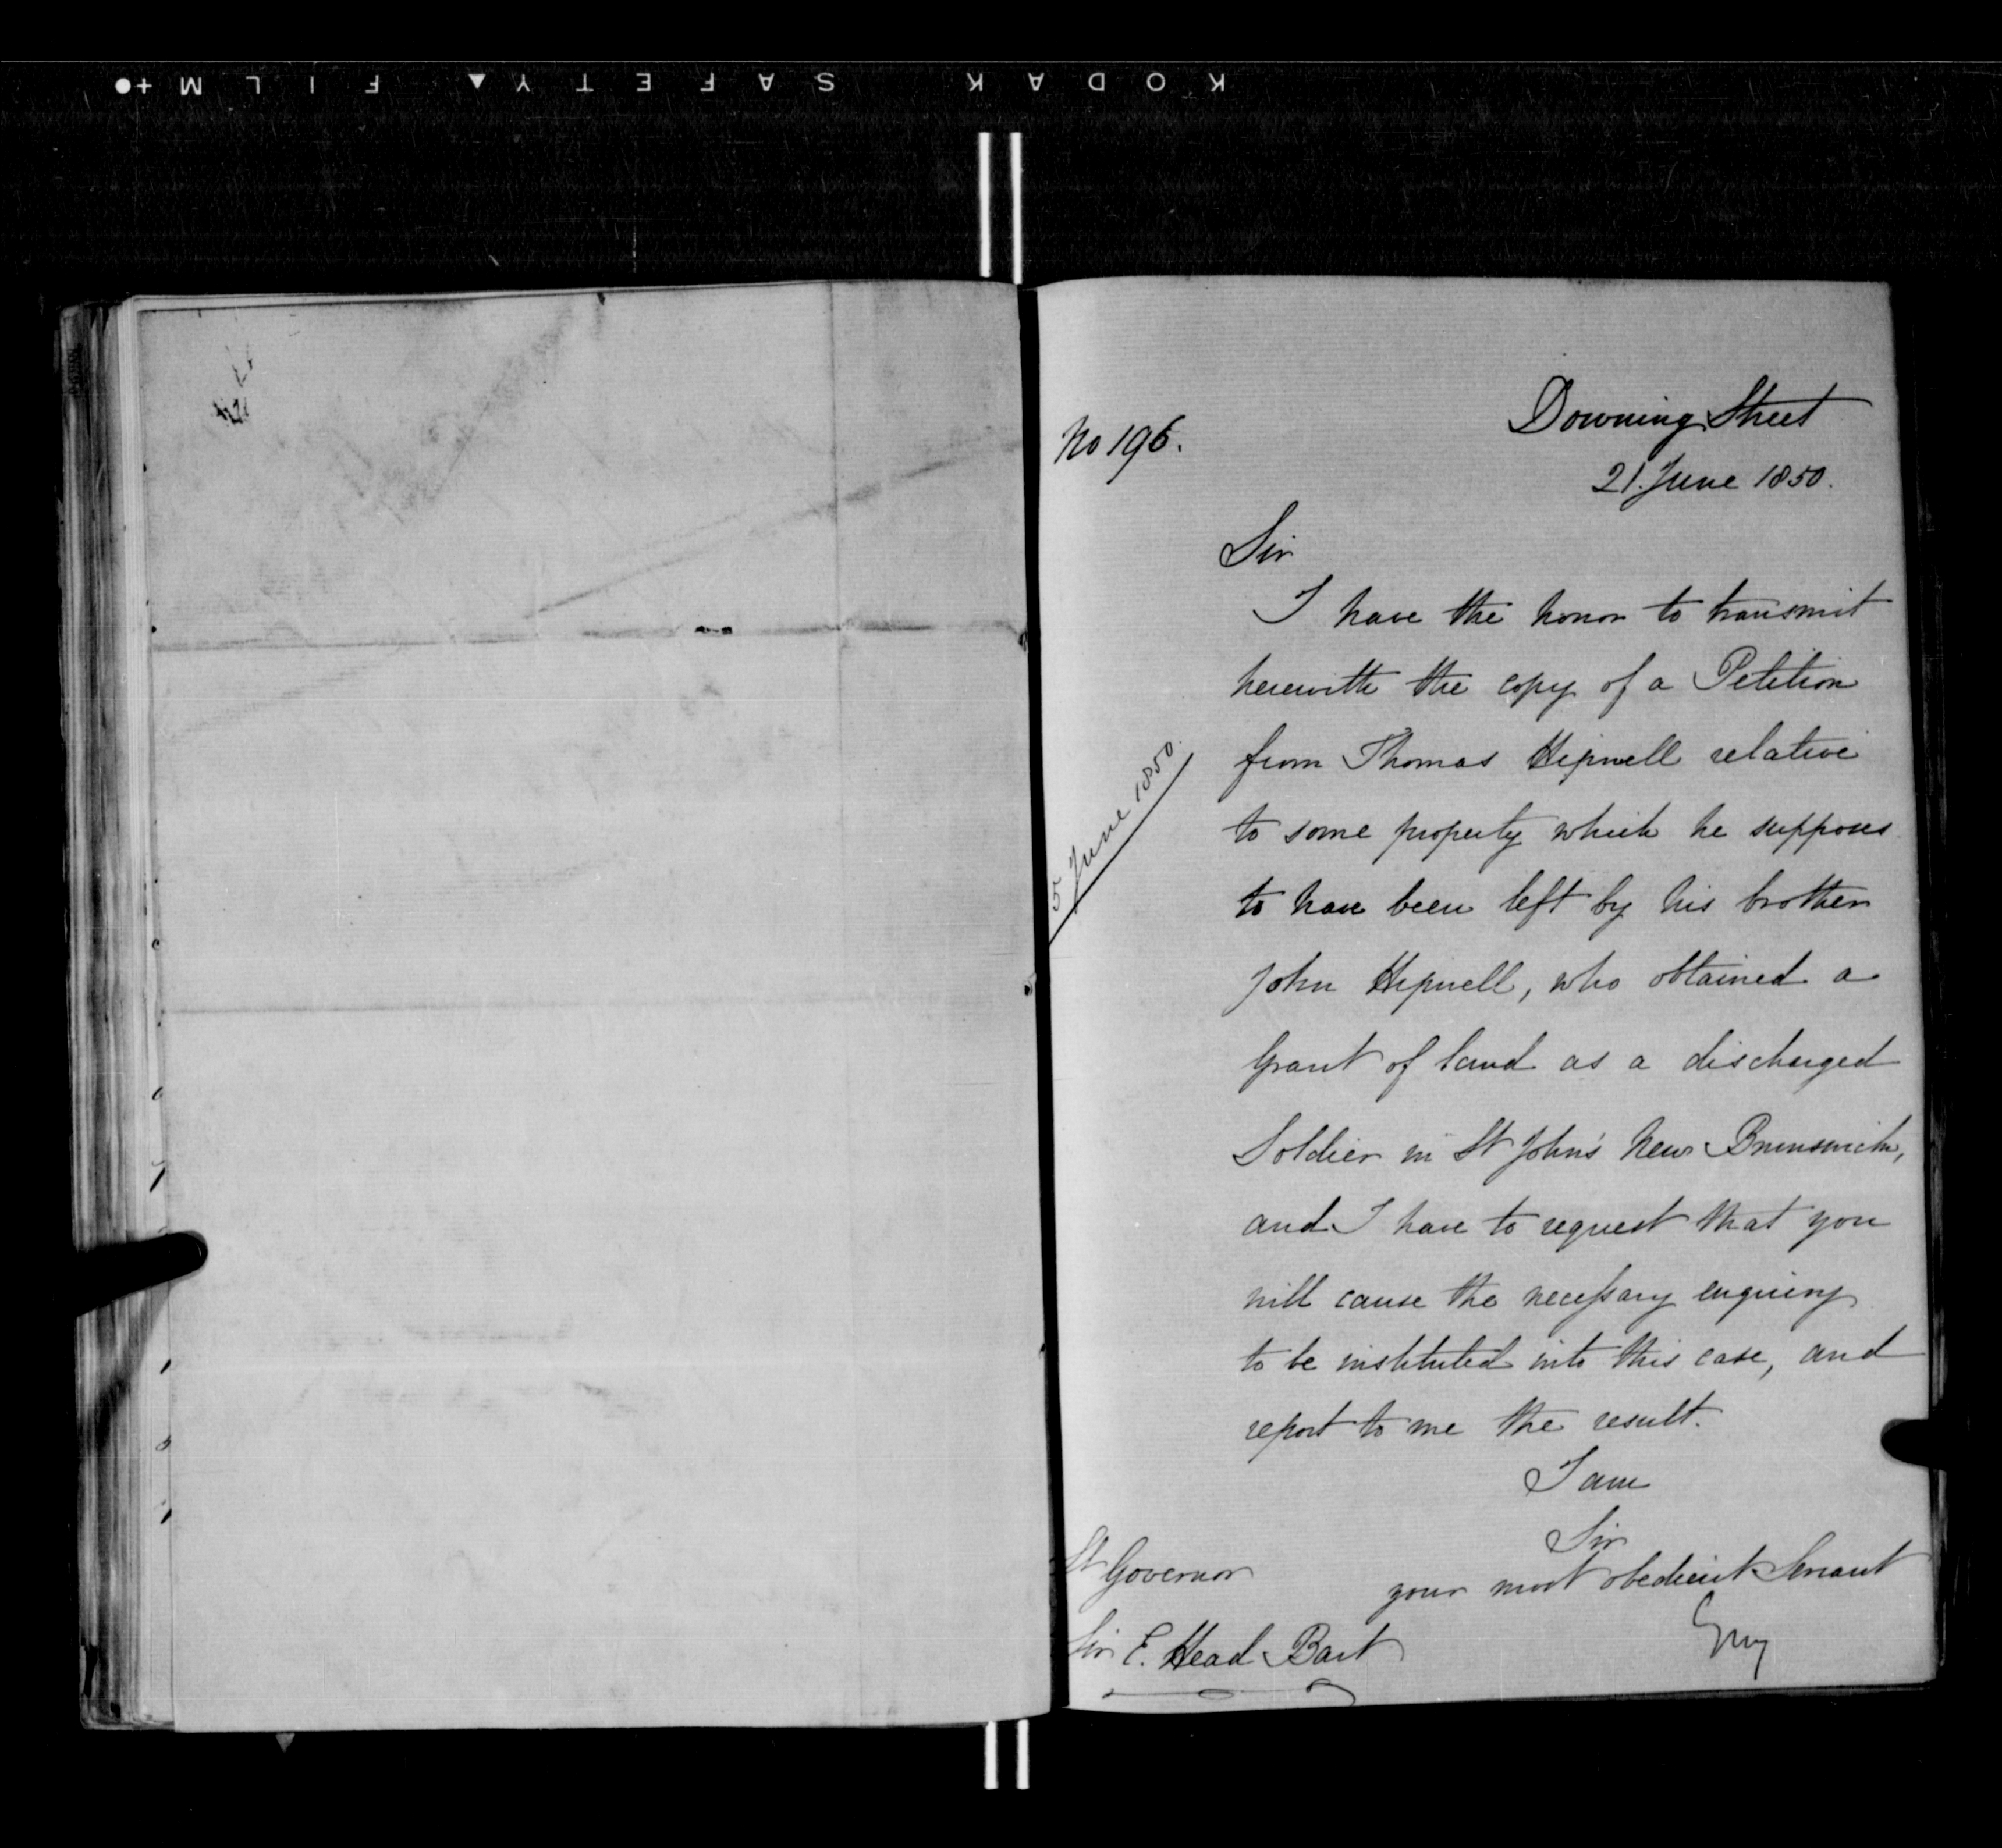 KODAK SAFETY FILM
No 196.
Downing Street
21. June 1850.
Sir
I have the honor to transmit
herewith the copy of a Petition
from Thomas Hipwell relative
to some property which he supposes
5 June 1850.
to have been left by his brother
John Hipwell, who obtained a
Grant of land as a discharged
Soldier in St John's New Brunswick,
and I have to request that you
will cause the necessary enquiry
to be instituted into this case, and
report to me the result.
I am
Sir
your most obedient Servant
Grey
Lt Governor
Sir E. Head Bart